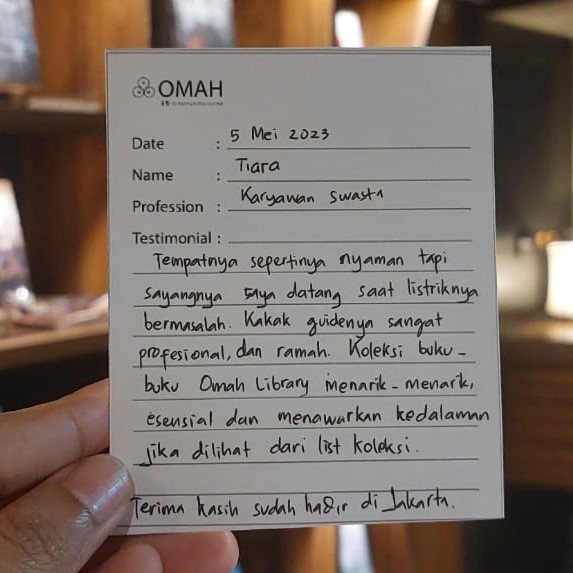 OMAH
Date : 5 Mei 2023
Name : Tiara
Profession : Karyawan Swasta
Testimonial :
Tempatnya sepertinya nyaman tapi
sayangnya saya datang saat listriknya
bermasalah. Kakak guidenya sangat
profesional, dan ramah. Koleksi buku-
buku Omah Library menarik-menarik,
esensial dan menawarkan kedalaman
jika dilihat dari list koleksi.
Terima kasih sudah hadir di Jakarta.